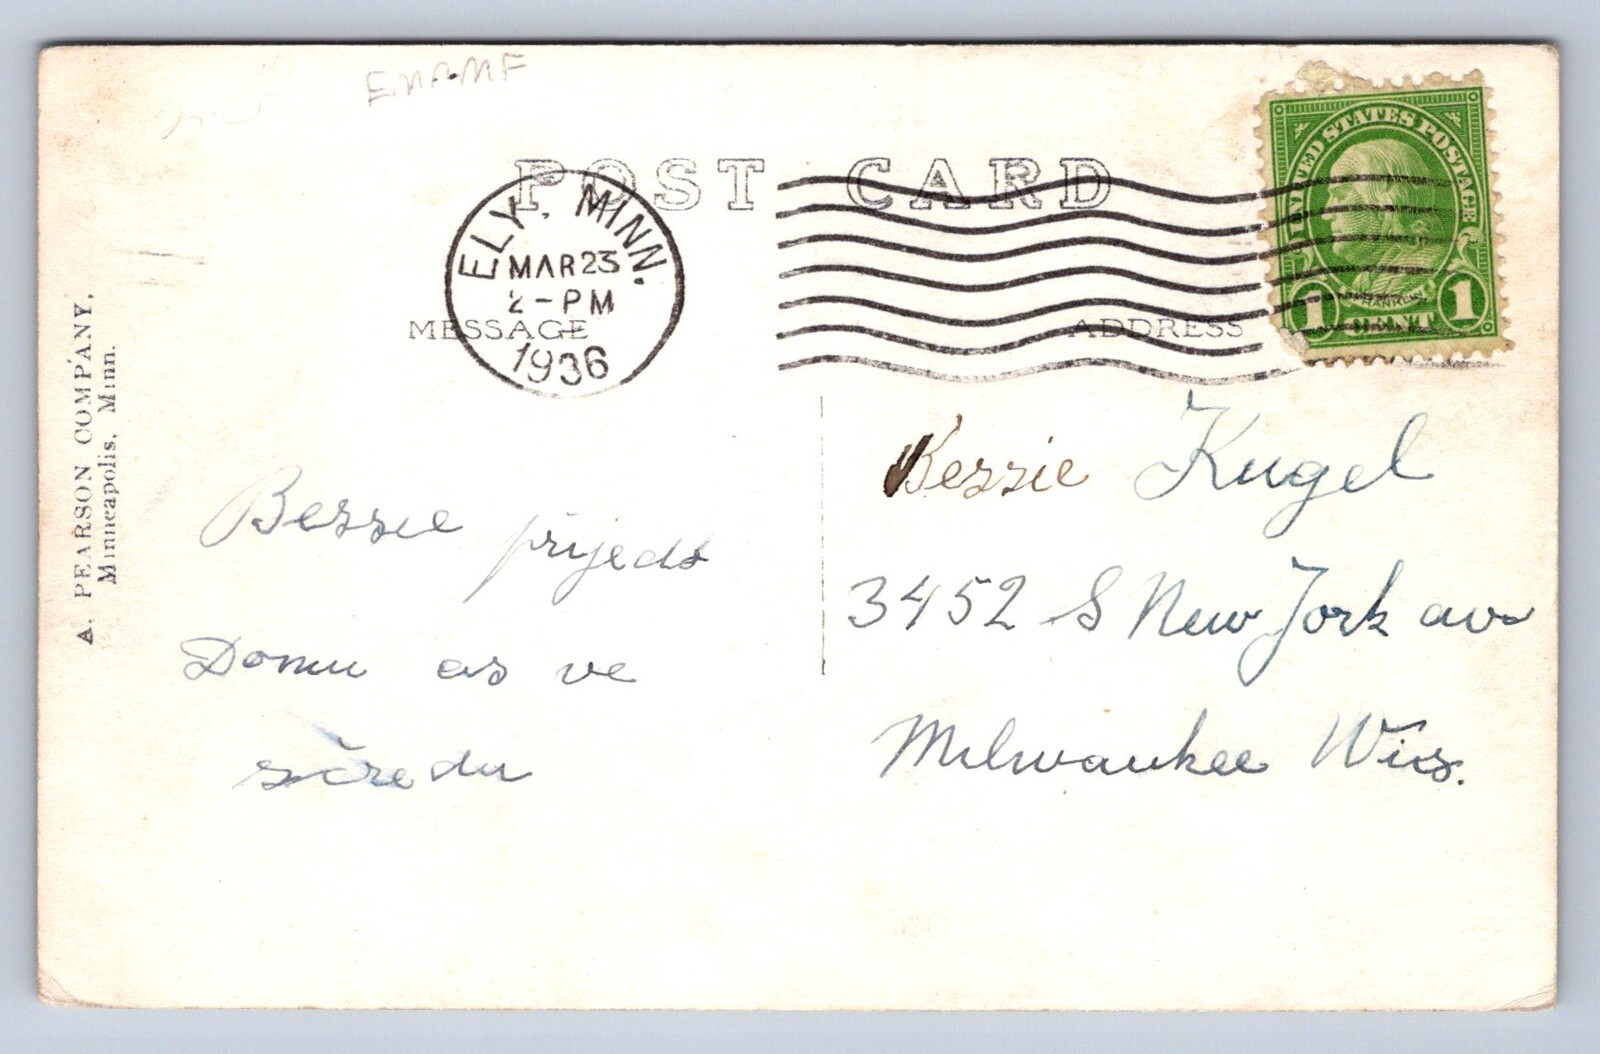 POST CARD
ELY, MINN.
MAR 23
2-PM
1936
UNITED STATES POSTAGE
FRANKLIN
1 CENT 1
MESSAGE
ADDRESS
A. PEARSON COMPANY,
Minneapolis, Minn.
Bessie prijeds
Domu as ve
sředu
Bessie Kugel
3452 S New Jork av
Milwaukee Wis.